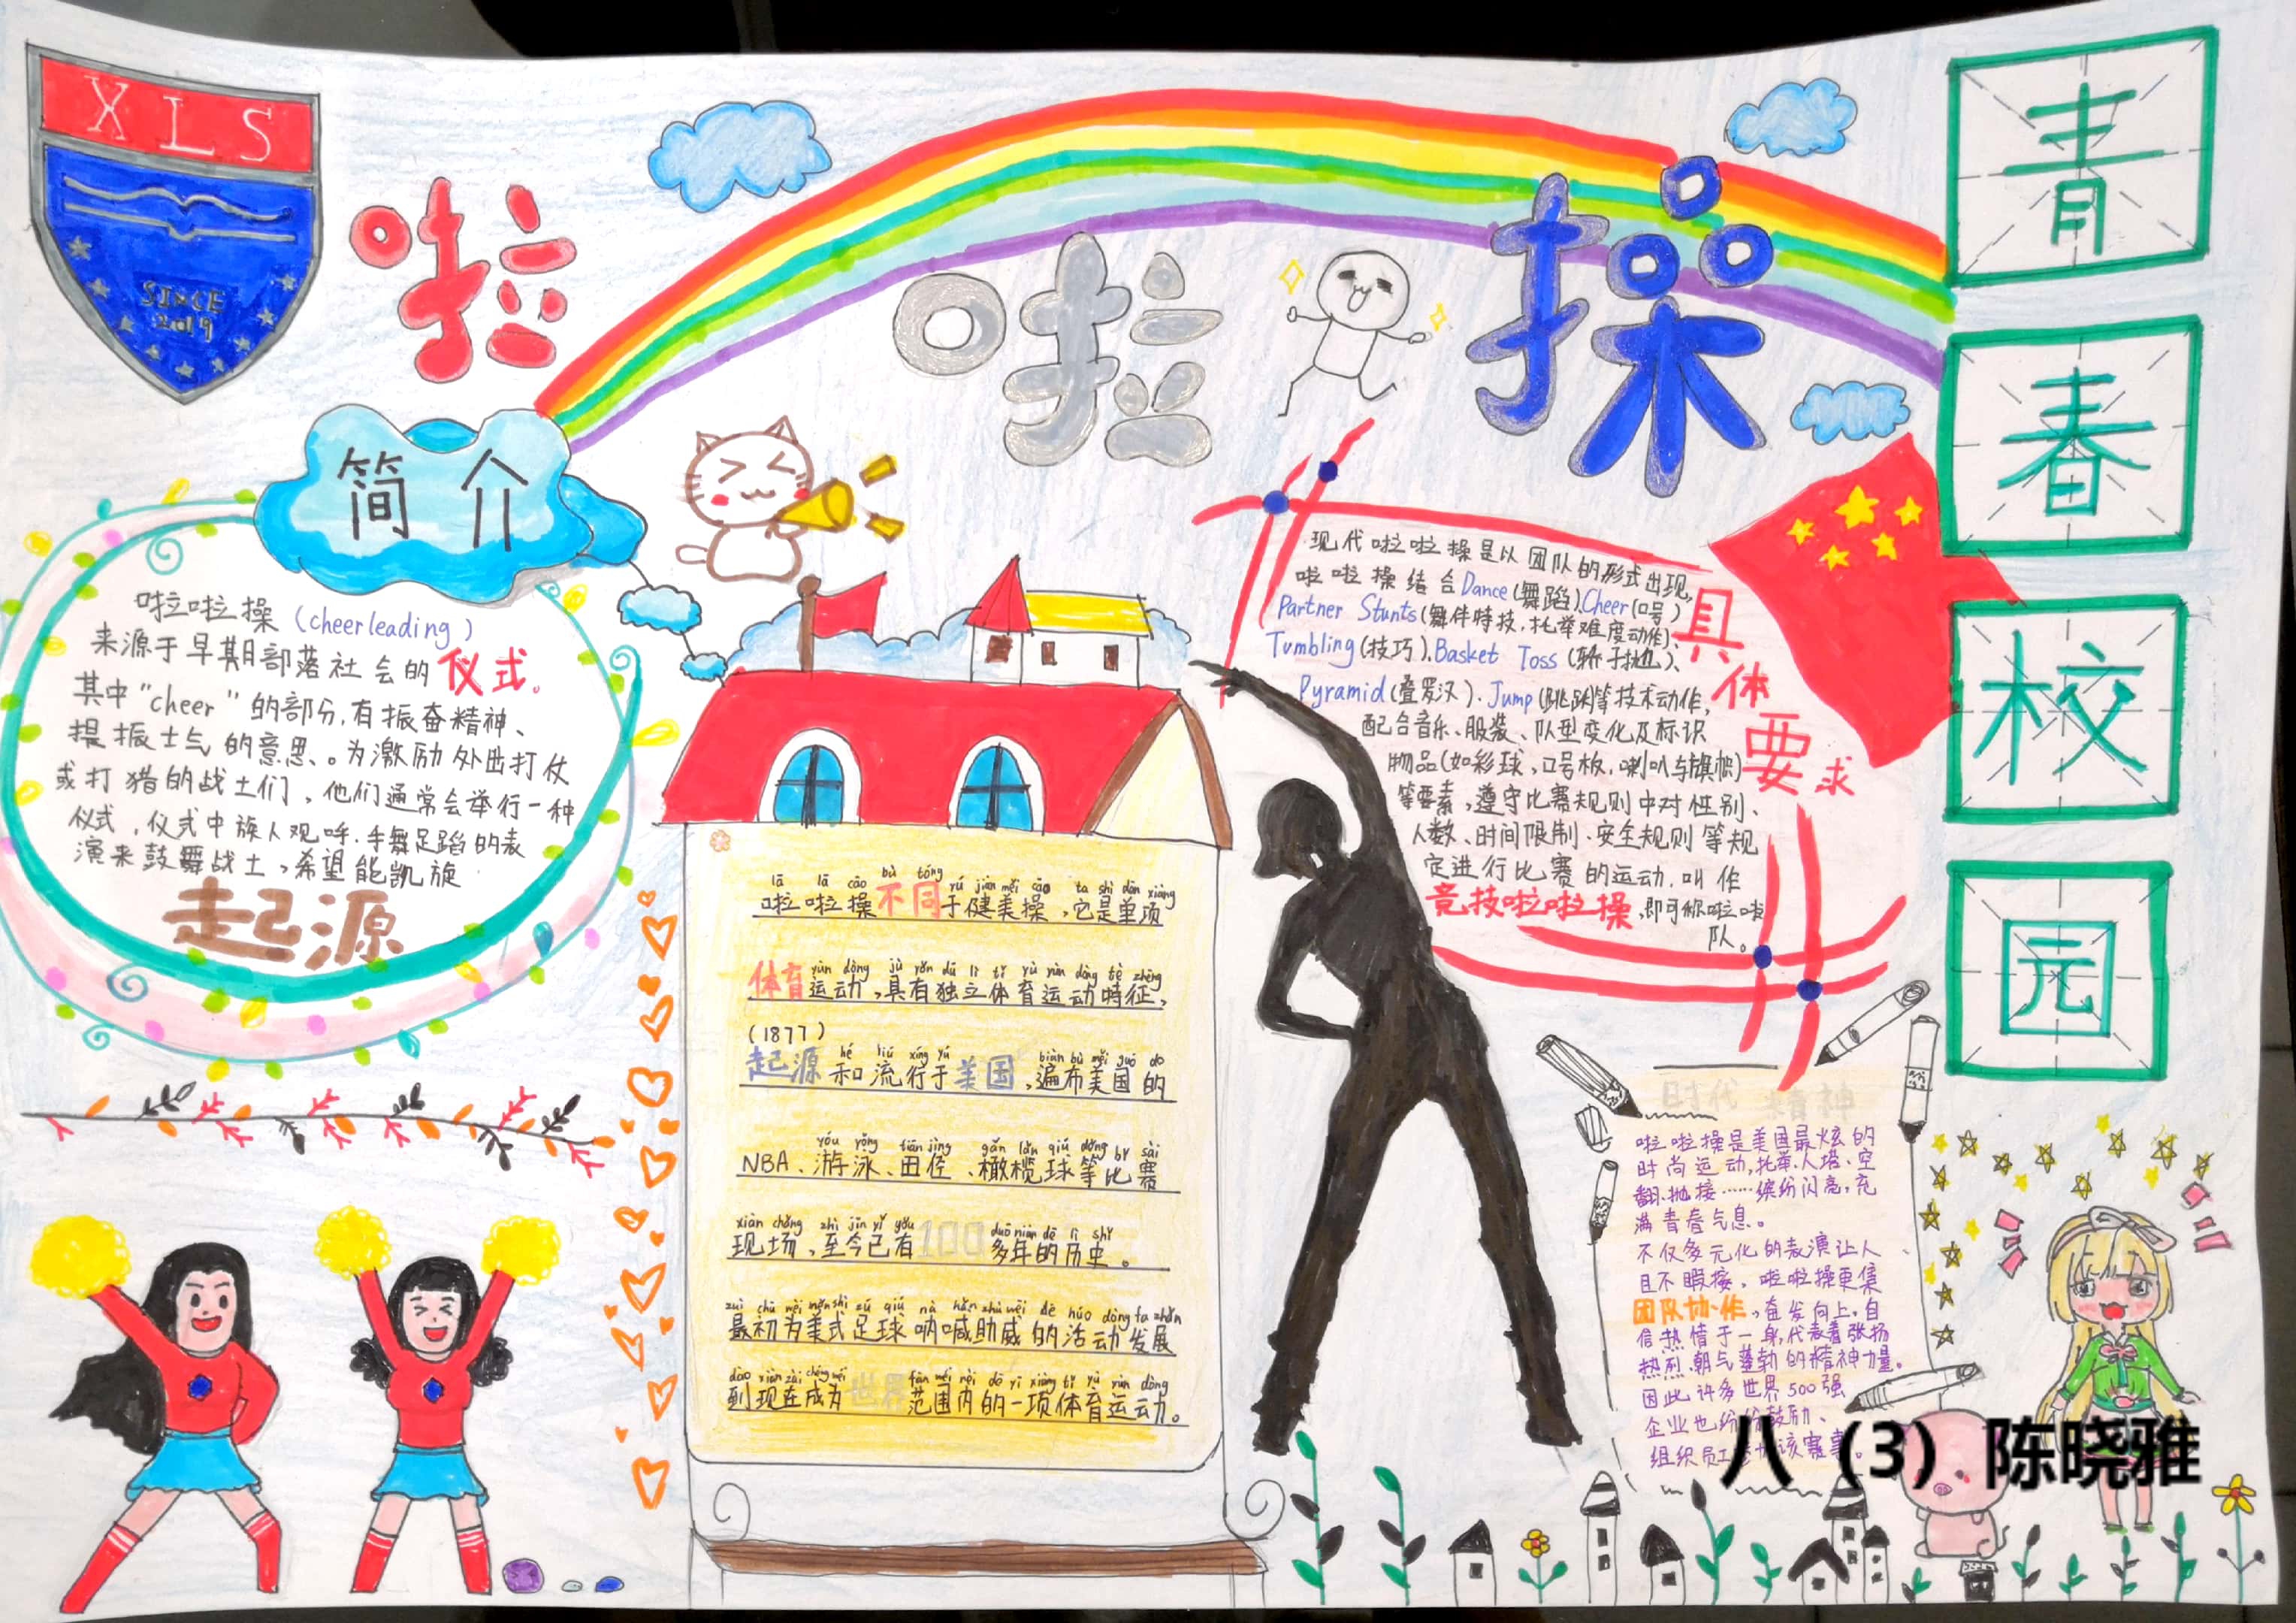 XLS
SINCE
2019
啦 啦 操
青春校园
简介
啦啦操（cheerleading）
来源于早期部落社会的仪式。
其中"cheer"的部分，有振奋精神、
提振士气的意思。为激励外出打仗
或打猎的战士们，他们通常会举行一种
仪式，仪式中族人观呼.手舞足蹈的表
演来鼓舞战士，希望能凯旋
起源
lā lā cāo bù tóng yú jiàn měi cāo tā shì dān xiàng
啦啦操不同于健美操，它是单项
体育运动，具有独立体育运动特征，
(1877)
起源和流行于美国，遍布美国的
NBA、游泳、田径、橄榄球等比赛
现场，至今已有100多年的历史。
最初为美式足球呐喊助威的活动发展
到现在成为世界范围内的一项体育运动。
具体要求
现代啦啦操是以团队的形式出现，
啦啦操结合Dance(舞蹈)、Cheer(口号)
Partner Stunts(舞伴特技，托举难度动作)、
Tumbling(技巧)、Basket Toss(轿子抛)、
Pyramid(叠罗汉)、Jump(跳跃)等技术动作，
配合音乐、服装、队型变化及标识
物品(如彩球，口号板，喇叭与旗帜)
等要素，遵守比赛规则中对性别、
人数、时间限制、安全规则等规
定进行比赛的运动，叫作
竞技啦啦操，即可称啦啦
队。
时代精神
啦啦操是美国最炫的
时尚运动，托举、人塔、空
翻、抛接……缤纷闪亮，充
满青春气息。
不仅多元化的表演让人
目不暇接，啦啦操更集
团队协作，奋发向上，自
信热情于一身，代表着张扬
热烈、朝气蓬勃的精神力量。
因此许多世界500强
企业也纷纷鼓励、
组织员工
八（3）陈晓雅